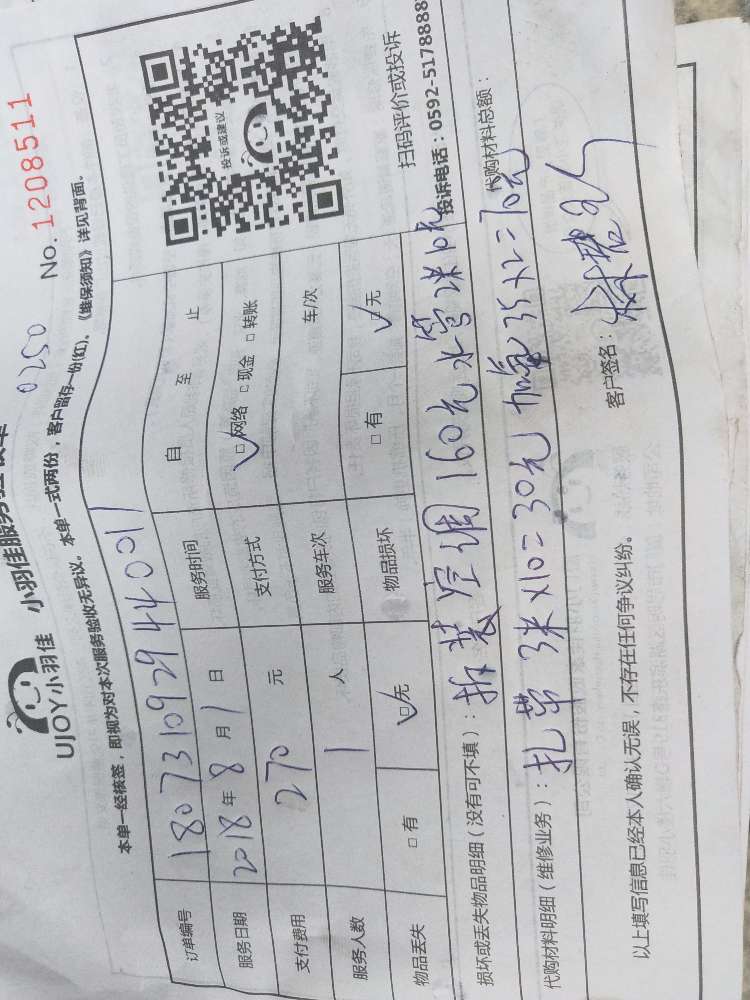 0250
No. 1208511
UJOY小羽佳 小羽佳服务
本单一经核签，即视为对本次服务验收无异议。本单一式两份，客户留存一份(红)、《维保须知》详见背面。
订单编号 180731092944001
服务日期 2018年8月1日 服务时间 自 至 止
支付费用 270 元 支付方式 ☑网络 □现金 □转账
服务人数 1 人 服务车次 车/次
物品丢失 □有 ☑无 物品损坏 □有 ☑无
投诉或建议
扫码评价或投诉
投诉电话：0592-5178888
损坏或丢失物品明细（没有可不填）：拆装空调160元 水管2米10元
代购材料明细（维修业务）：扎带3米×10=30元 加氟35×2=70元
代购材料总额：
以上填写信息已经本人确认无误，不存在任何争议纠纷。
客户签名：